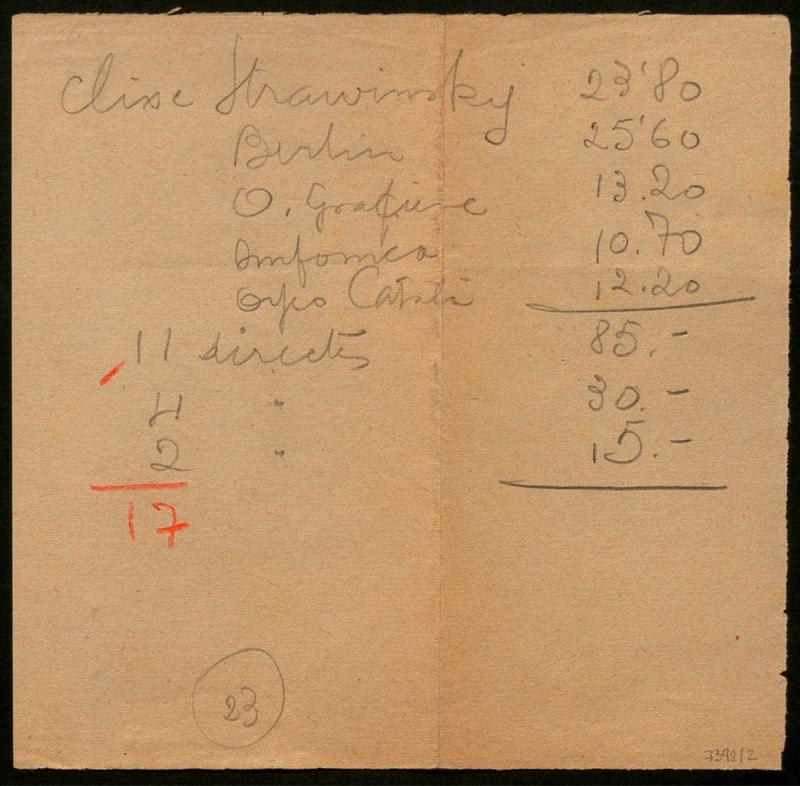 Clixe Strawinsky 23'80
Berlin 25'60
O. Grafique 13.20
Simfonica 10.70
Orfeo Català 12.20
11 directes 85.-
4 " 30.-
2 " 15.-
17
23
7398/2